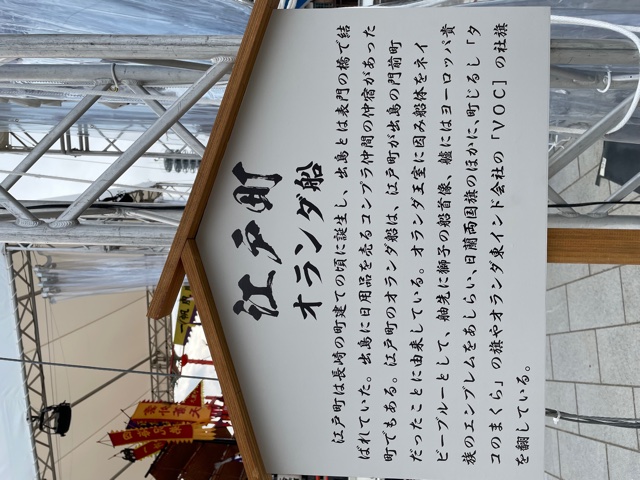 江戸町
オランダ船
江戸町は長崎の町建ての頃に誕生し、出島とは表門の橋で結
ばれていた。出島に日用品を売るコンプラ仲間の仲宿があった
町でもある。江戸町のオランダ船は、江戸町が出島の門前町
だったことに由来している。オランダ王室に因み船体をネイ
ビーブルーとして、舳先に獅子の船首像、艫にはヨーロッパ貴
族のエンブレムをあしらい、日蘭両国旗のほかに、町じるし「タ
コのまくら」の旗やオランダ東インド会社の「VOC」の社旗
を翻している。